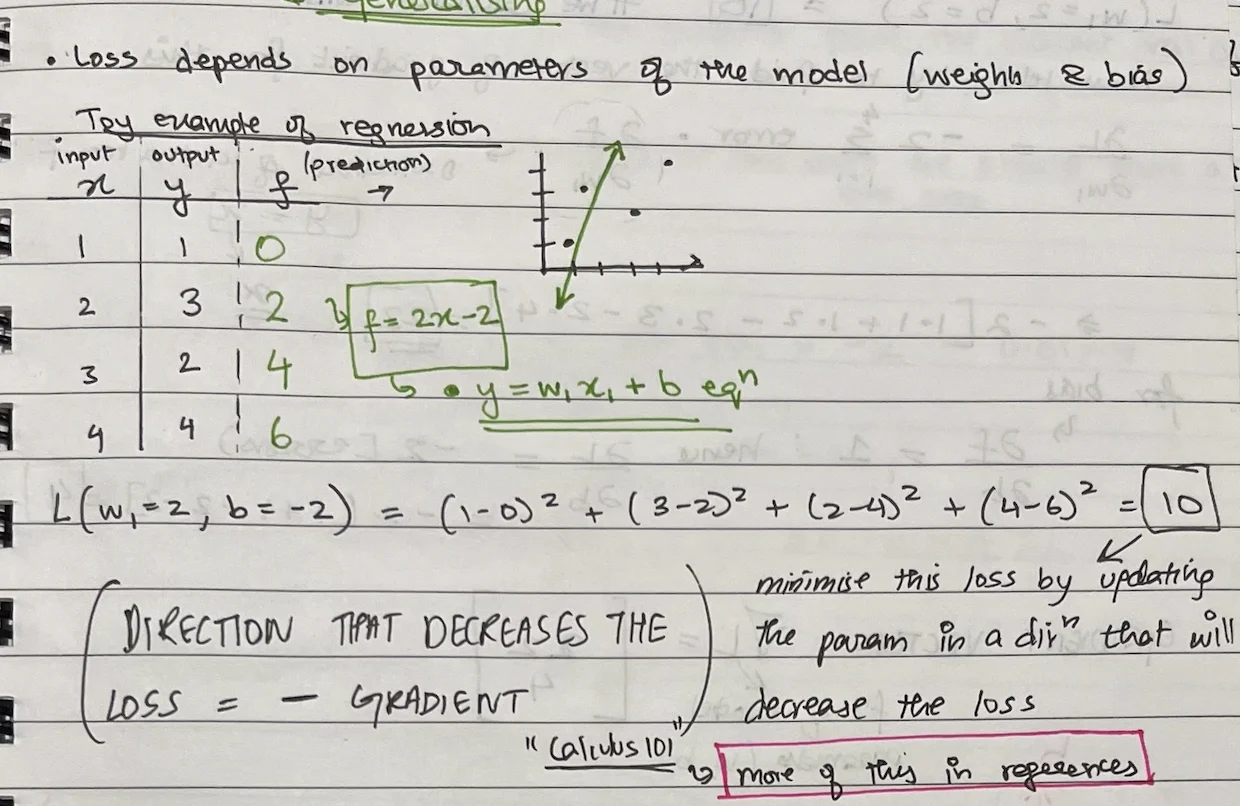 generalising
• Loss depends on parameters of the model (weights & bias)
Toy example of regression
input output (prediction)
x y f →
1 1 0
2 3 2 f = 2x - 2
3 2 4
• y = w₁x₁ + b eqⁿ
4 4 6
L(w₁=2, b=-2) = (1-0)² + (3-2)² + (2-4)² + (4-6)² = 10
minimise this loss by updating
the param in a dirⁿ that will
decrease the loss
(DIRECTION THAT DECREASES THE
LOSS = - GRADIENT)
"Calculus 101"
more of this in references